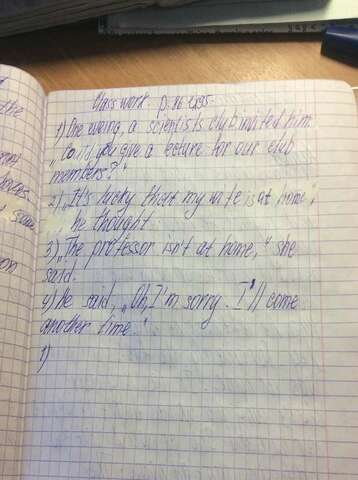 Class work p. 86 ex 95.
1) One evening, a scientists club invited him
„Could you give a lecture for our club
members?"
2) „It's lucky that my wife is at home",
he thought.
3) „The professor isn't at home," she
said.
4) He said, „Oh, I'm sorry. I'll come
another time."
1)
the
on